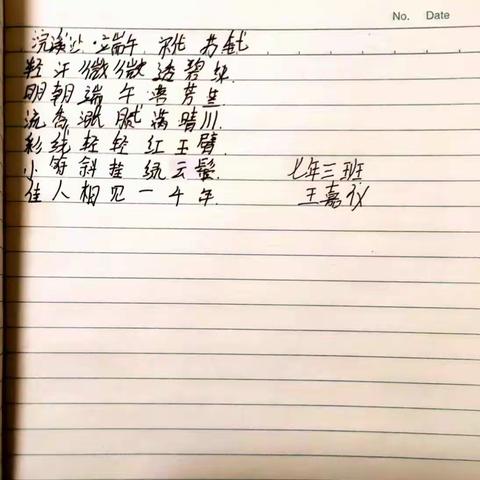 No. Date
浣溪沙·端午 宋代 苏轼
轻汗微微透碧纨.
明朝端午浴芳兰.
流香涨腻满晴川.
彩线轻轻红玉臂.
小符斜挂绿云鬟.
佳人相见一千年.
七年三班
王嘉仪